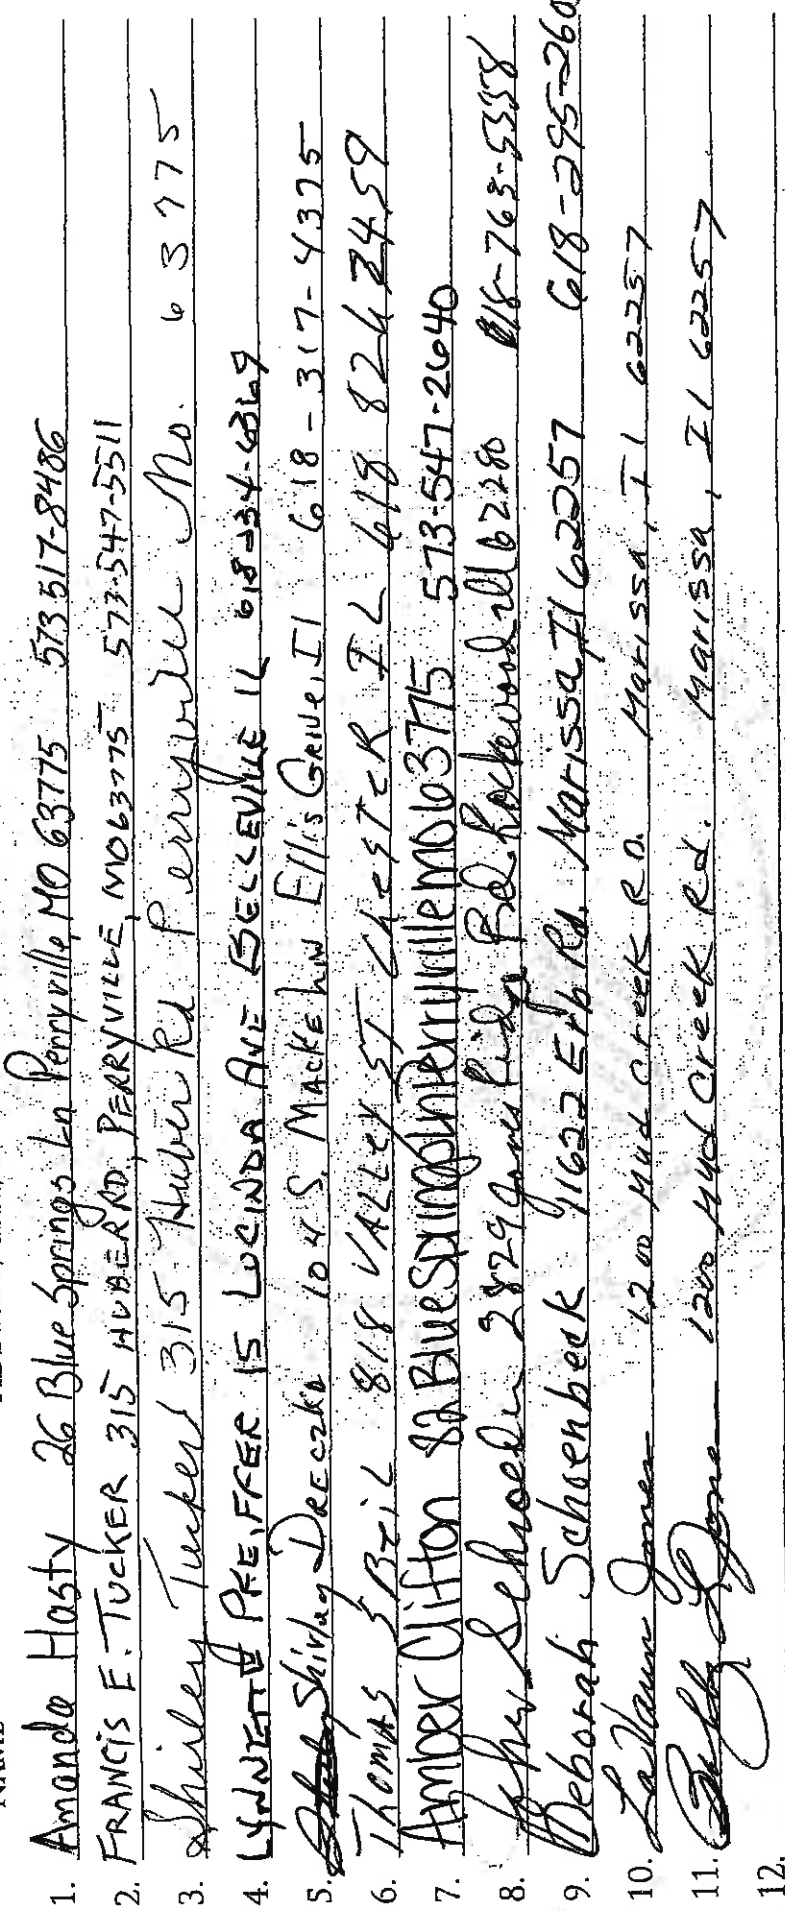 NAME
1. Amanda Hasty 26 Blue Springs Ln Perryville, MO 63775 573 517-8486
2. FRANCIS E. TUCKER 315 HUBER RD, PERRYVILLE, MO 63775 573-547-5511
3. Shirley Tucker 315 Huber Rd Perryville Mo. 63775
4. LYNNETTE PFEIFFER 15 LUCINDA AVE BELLEVILLE IL
5. Shirley DRECZKA 104 S. Ellis Grove, Il 618-317-4375
6. Thomas 818 VALLEY ST CHESTER IL 618 826 2459
7. Amber Clifton 82 Blue Spring Ln Perryville mo 63775 573-547-2640
8. Schroeder 2829 Ridge Rd Rockwood Ill 62280 618-763-5338
9. Deborah Schoenbeck 11622 Erb Rd. Marissa Il 62257 618-295-260
10. LaVaun Jones 1200 Mud Creek RD. Marissa, Il 62257
11. Jones 1200 Mud Creek Rd. Marissa, Il 62257
12.